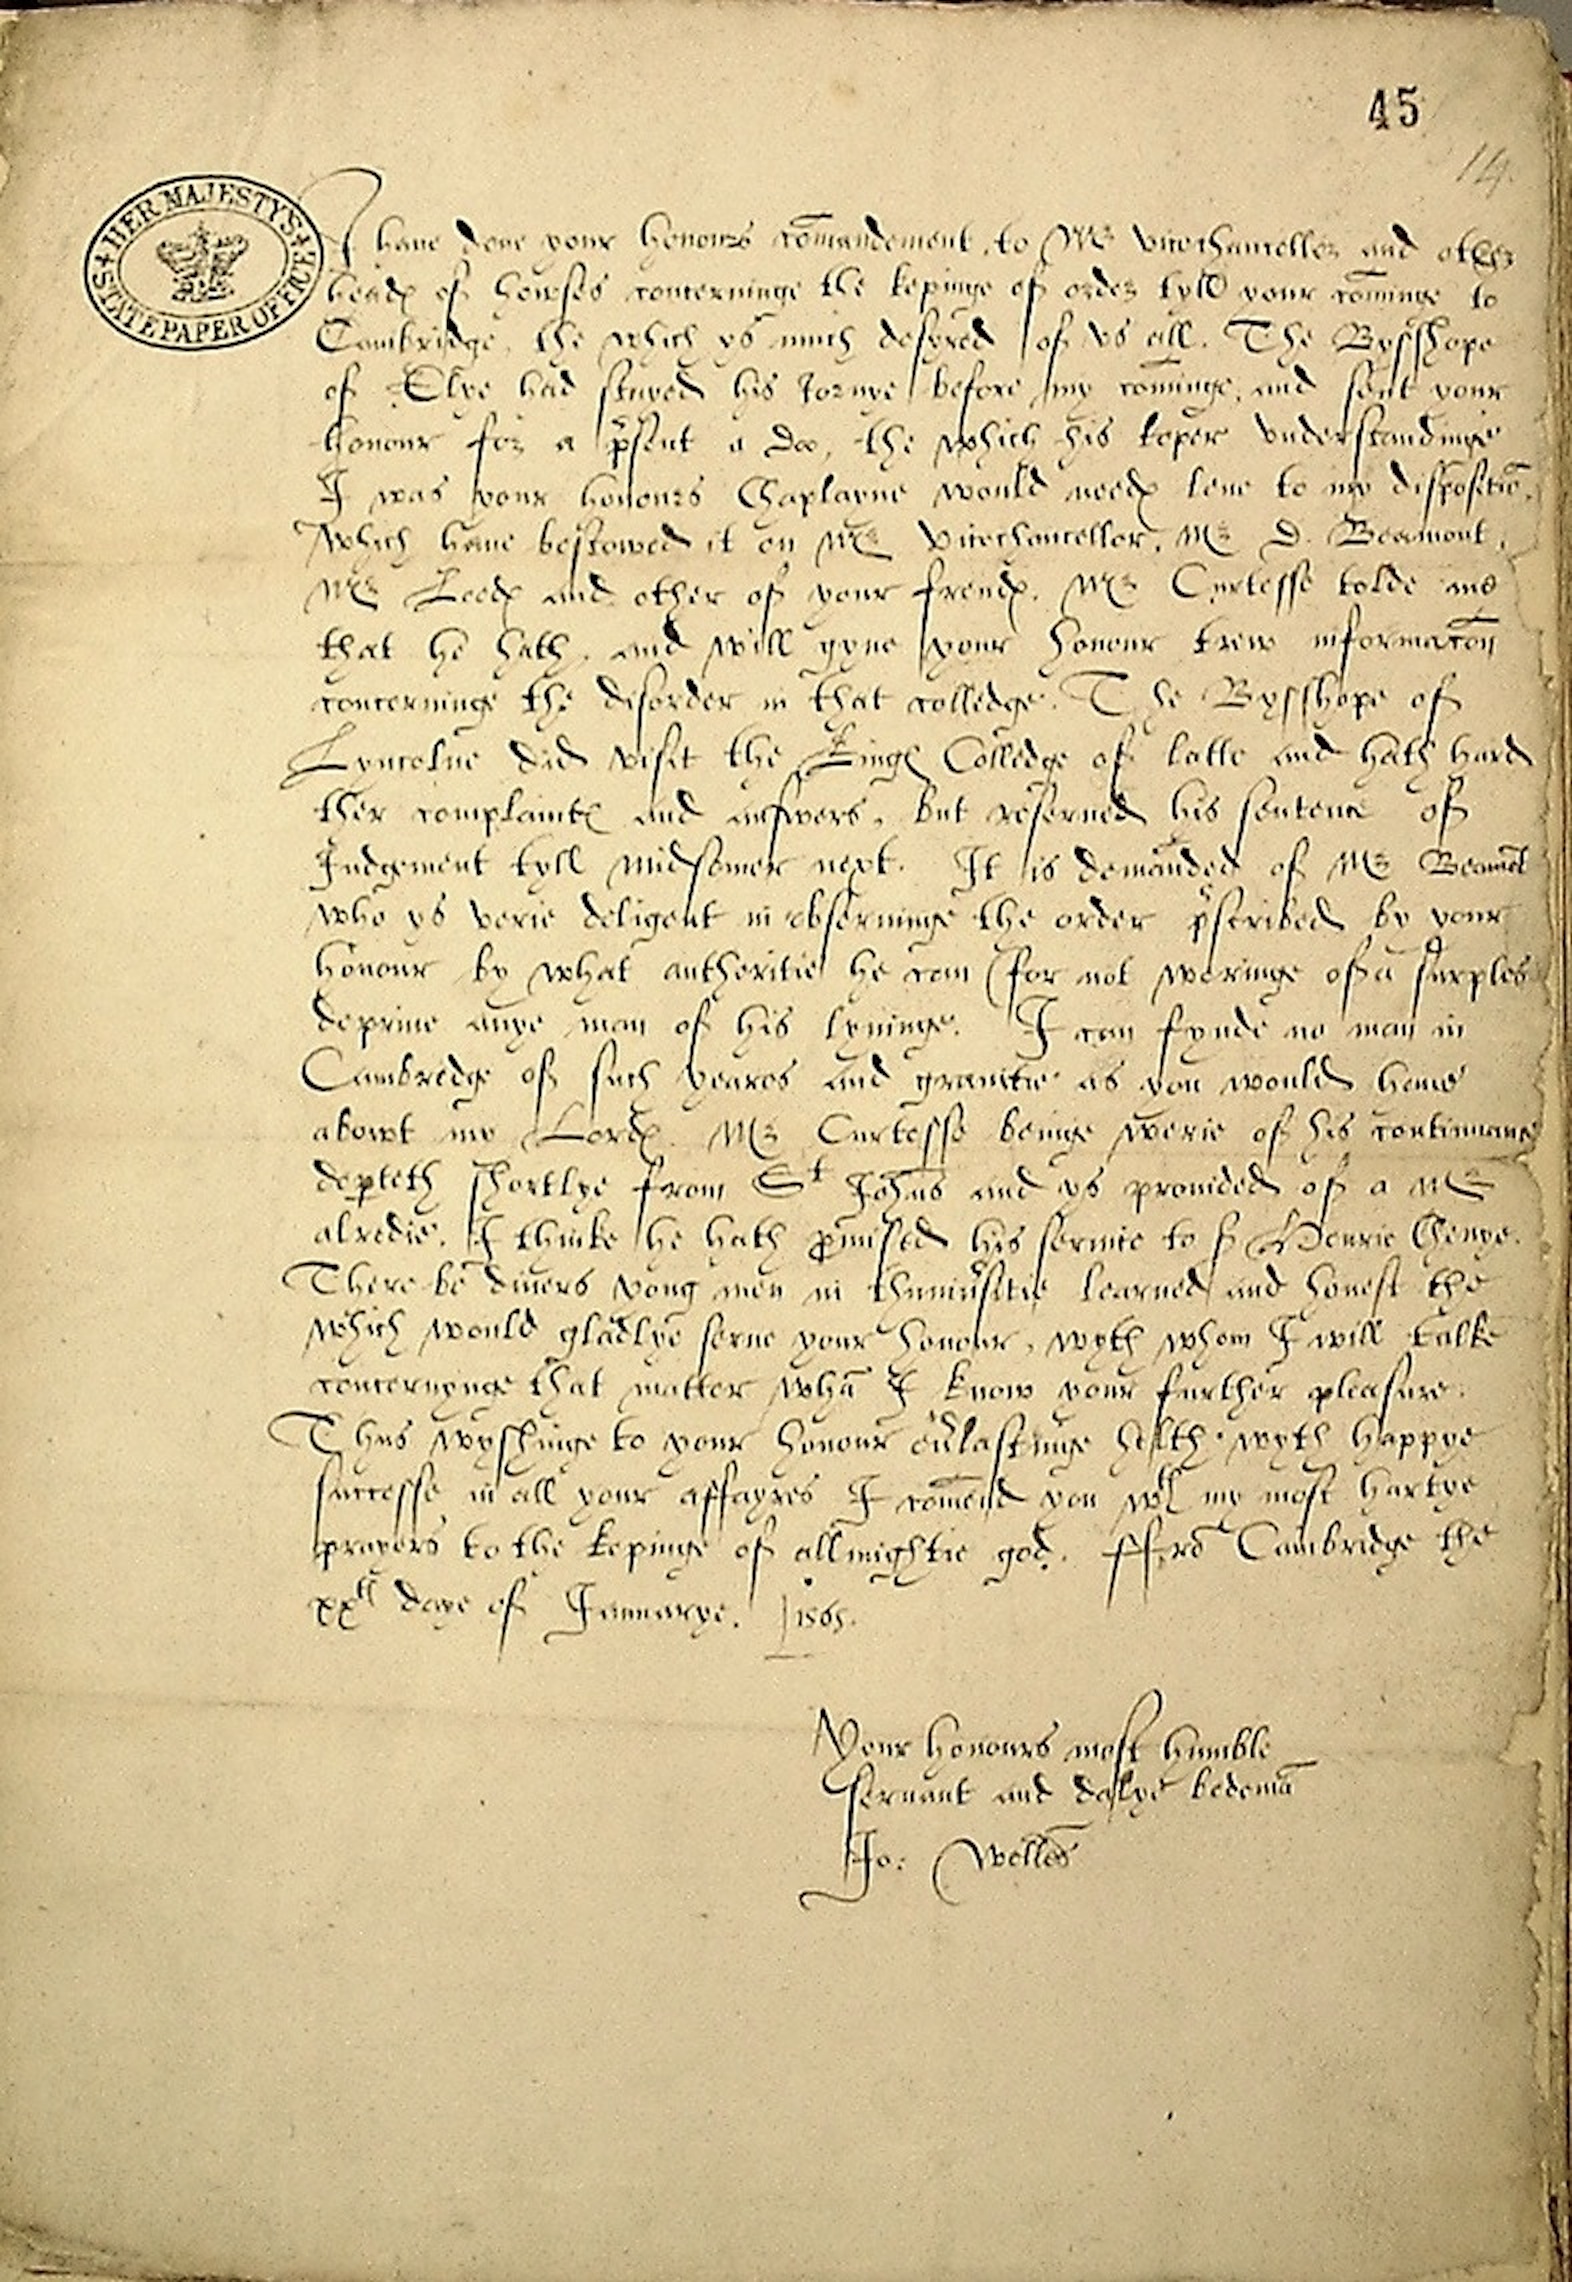 45
14.
HER MAJESTY'S STATE PAPER OFFICE
I haue done your honours cōmandement, to Mr vicechancellor and other
headꝭ of howses concerninge the kepinge of order tyll your cōminge to
Cambridge, the which ys much desyred of vs all. The Bysshope
of Elye had stayed his Jornye before my cōminge, and sent your
honour for a p̄sent a doe, the which his keper vnderstandinge
I was your honours Chaplayne would needꝭ leue to my dispositiō,
which haue bestowed it on Mr vicechancellor, Mr D. Beamont,
Mr Leedꝭ and other of your frendꝭ. Mr Curtesse tolde me
that he hath, and will gyue your honour trew informacōn
concerninge the disorder in that colledge. The Bysshope of
Lyncolne did visit the Kingꝭ Colledge of latte and hath hard
ther complaintꝭ and answers, but reserued his sentence of
Judgement tyll midsomer next. It is demānded of Mr Beamōt
who ys verie deligent in obseruinge the order p̄scribed by your
honour by what authoritie he can (for not weringe of a surples
depriue anye man of his lyuinge. I can fynde no man in
Cambredge of such yeares and grauitie as you would haue
abowt my Lordꝭ. Mr Curtesse beinge werie of his continuance
dep̱teth shortlye from St Johns and ys prouided of a Mr
alredie. I thinke he hath p̱mised his seruice to sr Henrie Chenye.
There be diuers yong men in thuniūsitie learned and honest the
which would gladlye serue your honour, wyth whom I will talke
concernynge that matter whā I know your further pleasure.
Thus wyshinge to your honour eūlastinge helth wyth happye
successe in all your affayres I cōmend you wth my most hartye
prayers to the kepinge of allmightie god. ffrō Cambridge the
xxth daye of Januarye. 1565.
Your honours most humble
seruant and dalye bedemā
Jo: Welles